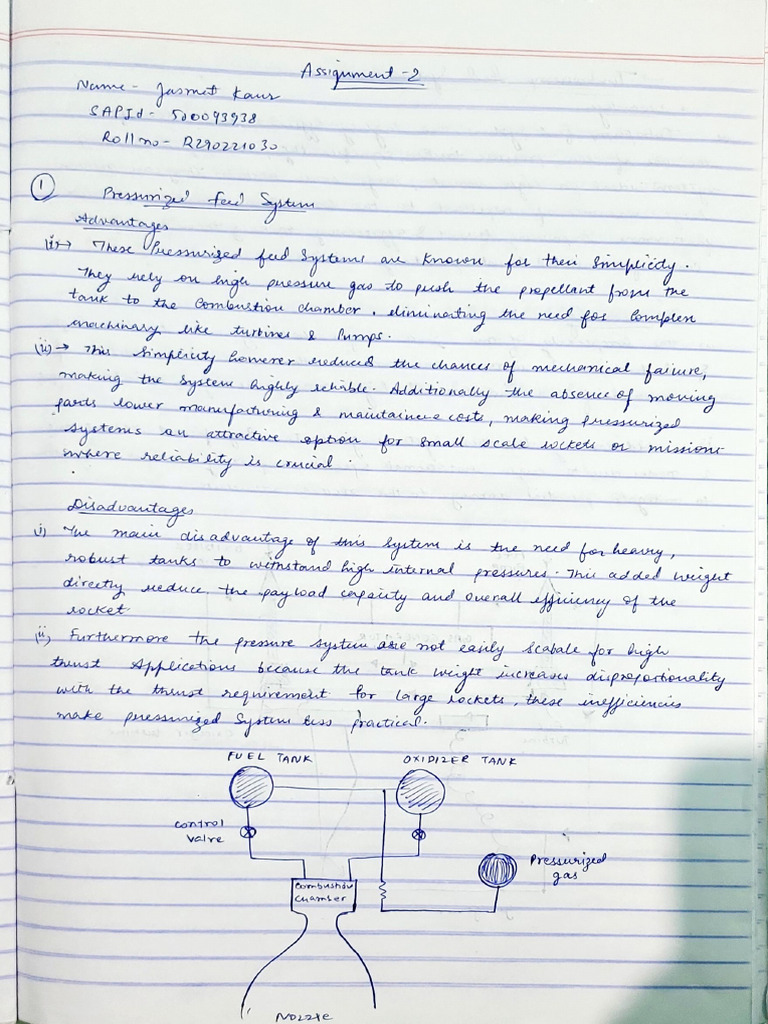 Assignment - 2
Name - Jasmet Kaur
SAP Id - 500093938
Roll no - R290221030
① Pressurized feed System
Advantages
(i)→ These Pressurized feed Systems are known for their Simplicity.
They rely on high pressure gas to push the propellant from the
tank to the Combustion chamber, eliminating the need for Complex
machinary like turbines & Pumps.
(ii)→ This Simplicity however reduced the chances of mechanical failure,
making the System highly reliable. Additionally the absence of moving
parts lower manufacturing & maintainence costs, making pressurized
Systems an attractive option for small scale rockets or missions
where reliability is crucial.
Disadvantages
i) The main disadvantage of this System is the need for heavy,
robust tanks to withstand high internal pressures. This added weight
directly reduce the payload capacity and overall efficiency of the
rocket
ii) Furthermore the pressure system are not easily scabale for high
thrust Applications because the tank weight increases disproportionality
with the thrust requirement for large rockets, these inefficiencies
make pressurized System less practical.
FUEL TANK
OXIDIZER TANK
Control
Valve
Pressurized
gas
Combustion
Chamber
Nozzle